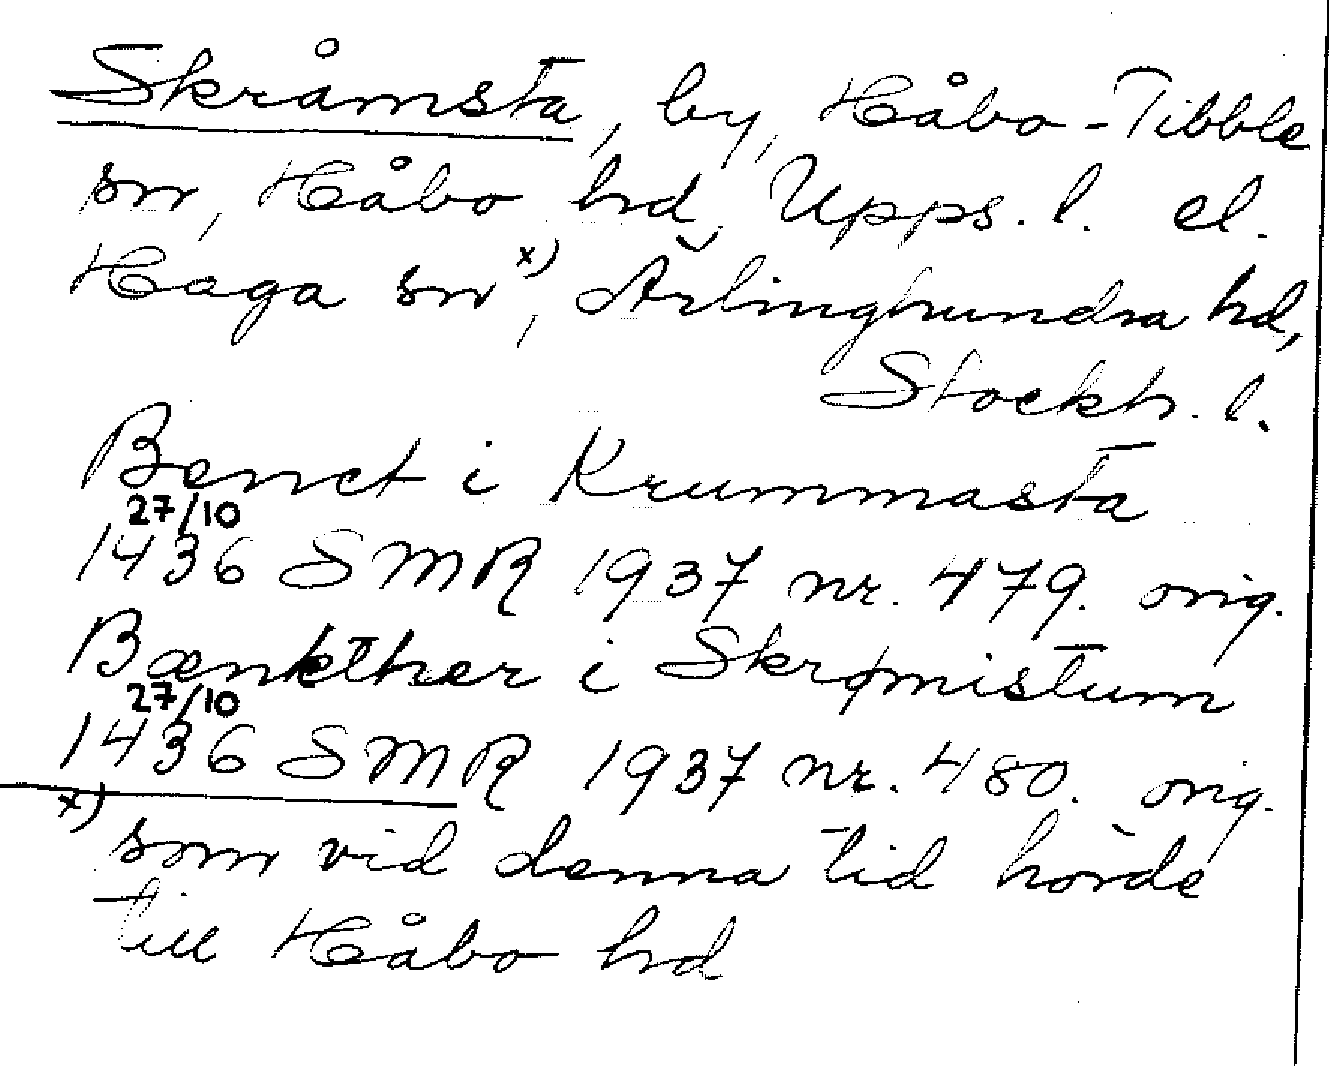 Skråmsta, by, Håbo-Tibble
sn, Håbo hd, Upps. l. el.
Haga sn x), Ärlinghundra hd,
Stockh. l.
Benct i Krummasta
27/10
1436 SMR 1937 nr. 479. orig.
Bænkther i Skrømistum
27/10
1436 SMR 1937 nr. 480. orig.
x)
som vid denna tid hörde
till Håbo hd